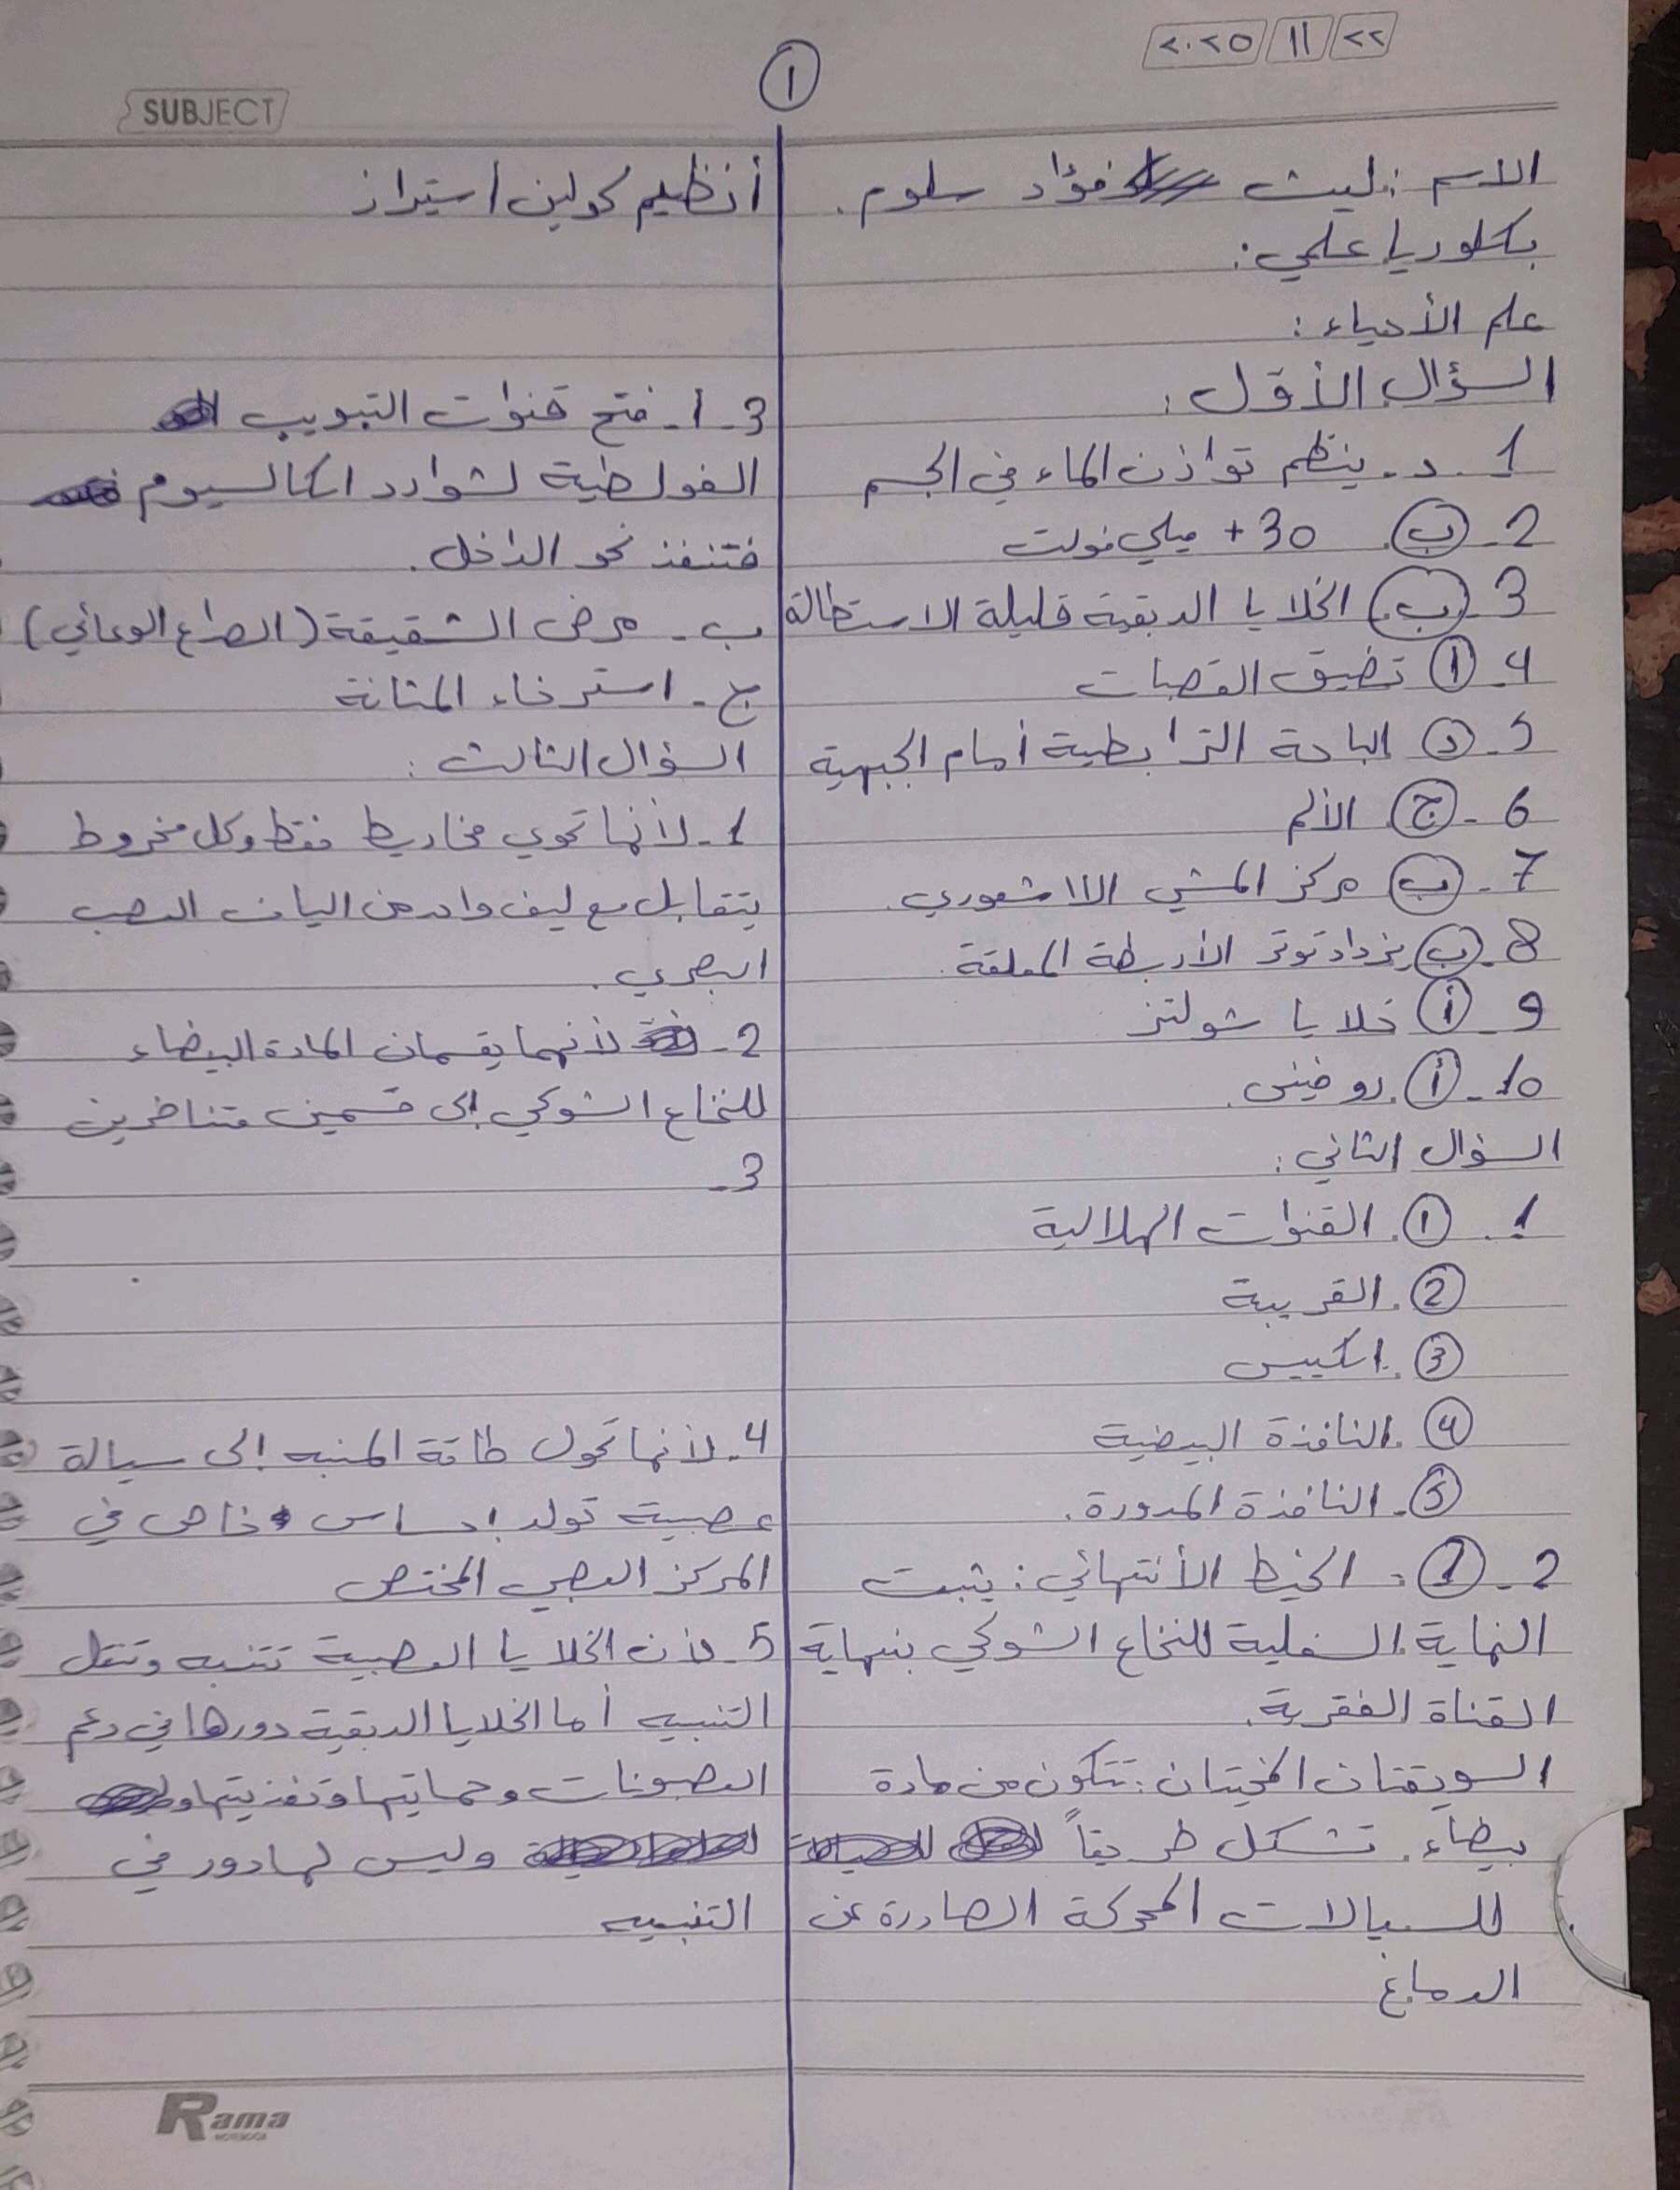 ٢٢ / ١١ / ٢٠٢٥
١
SUBJECT
الاسم : ليث فؤاد سلوم.
بكلوريا علمي :
علم الأحياء :
السؤال الأول :
1 - د - ينظم توازن الماء في الجسم
2 - ب. 30 + ميلي فولت
3 - ب. الخلايا الدبقية قليلة الاستطالة
4 - أ تضيق القصبات
5 - د الباحة الترابطية أمام الجبهية
6 - ج الألم
7 - ب مركز المشي اللاشعوري.
8 - ب يزداد توتر الأربطة المعلقة.
9 - أ خلايا شولتز
10 - أ. روفيني.
السؤال الثاني :
1. ١. القنوات الهلالية
2. القريبة
3. الكييس
4. النافذة البيضية
5. النافذة المدورة.
2 - 1. الخيط الأنتهائي : يثبت
النهاية السفلية للنخاع الشوكي بنهاية
القناة الفقرية.
السويقتان المخيتان : تتكون من مادة
بيضاء. تشكل طريقاً
للسيالات المحركة الصادرة عن
الدماغ
أنظيم كولين استيراز
3 - أ - فتح قنوات التبويب
الفولطية لشوارد الكالسيوم
فتنفذ نحو الداخل.
ب - مرض الشقيقة (الصداع الوعائي)
ج - استرخاء المثانة
السؤال الثالث :
1 - لأنها تحوي مخاريط فقط وكل مخروط
يتقابل مع ليف واحد من الياف العصب
البصري.
2 - لأنهما يقسمان المادة البيضاء
للنخاع الشوكي إلى قسمين متناظرين
3 -
4 - لأنها تحول طاقة المنبه إلى سيالة
عصبية تولد إحساس خاص في
المركز العصبي المختص
5 - لأن الخلايا العصبية تتنبه وتنقل
التنبيه أما الخلايا الدبقية دورها في دعم
العصبونات وحمايتها وتغذيتها
وليس لها دور في
التنبيه
Rama
NOTEBOOK